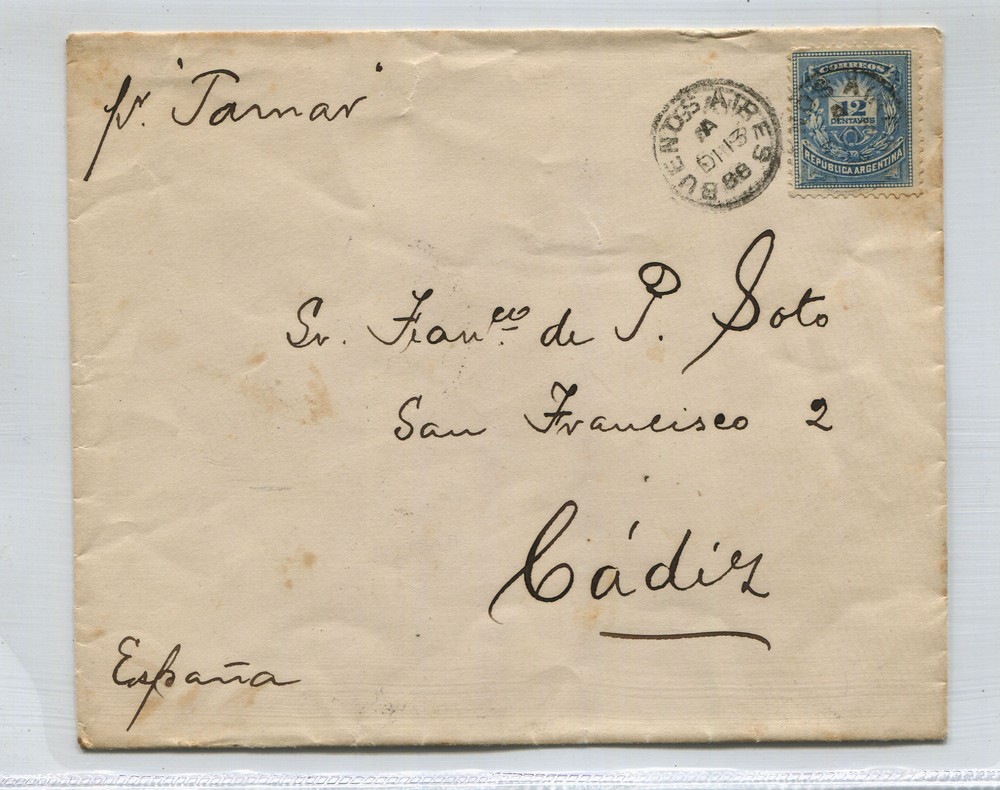 pr. "Tamar"
BUENOS AIRES
A
88
CORREOS
12
CENTAVOS
REPUBLICA ARGENTINA
Sr. Franco. de P. Soto
San Francisco 2
Cádiz
España